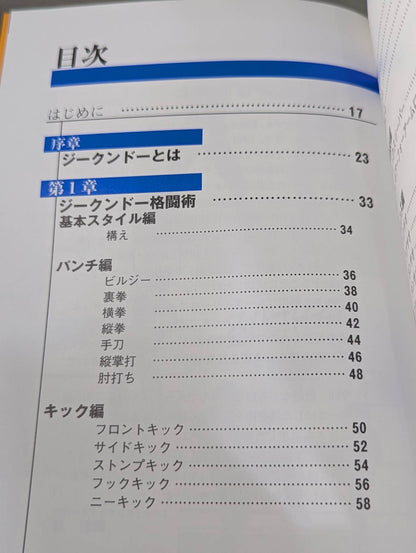 目次
はじめに 17
序章
ジークンドーとは 23
第1章
ジークンドー格闘術 33
基本スタイル編
構え 34
パンチ編
ビルジー 36
裏拳 38
横拳 40
縦拳 42
手刀 44
縦掌打 46
肘打ち 48
キック編
フロントキック 50
サイドキック 52
ストンプキック 54
フックキック 56
ニーキック 58